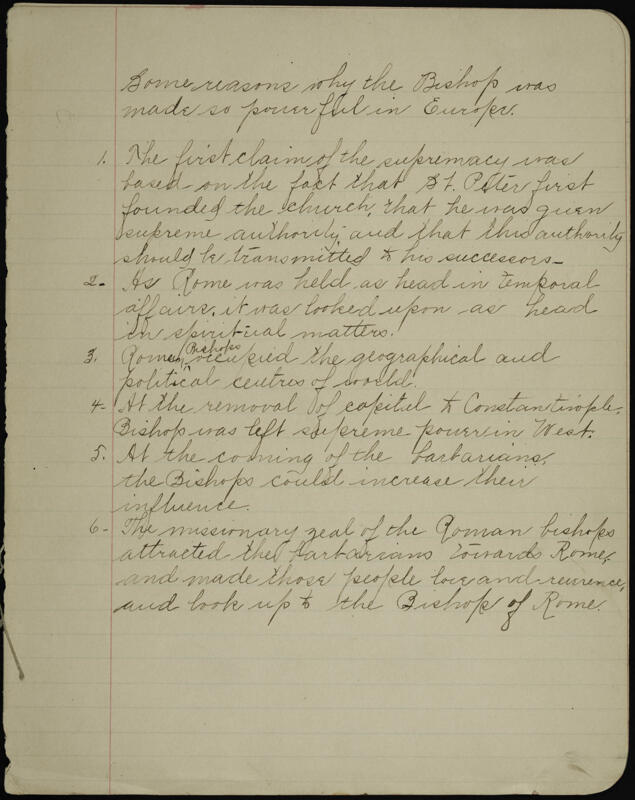 Some reasons why the Bishop was
made so powerful in Europe.
1. The first claim of the supremacy was
based on the fact that St. Peter first
founded the church, that he was given
supreme authority, and that this authority
should be transmitted to his successors—
2- As Rome was held as head in temporal
affairs, it was looked upon as head
in spiritual matters.
3. Roman Bishops occupied the geographical and
political centres of world.
4- At the removal of capital to Constantinople,
Bishop was left supreme power in West.
5. At the coming of the barbarians,
the Bishops could increase their
influence.
6- The missionary zeal of the Roman bishops
attracted the barbarians towards Rome,
and made those people love and reverence,
and look up to the Bishop of Rome.